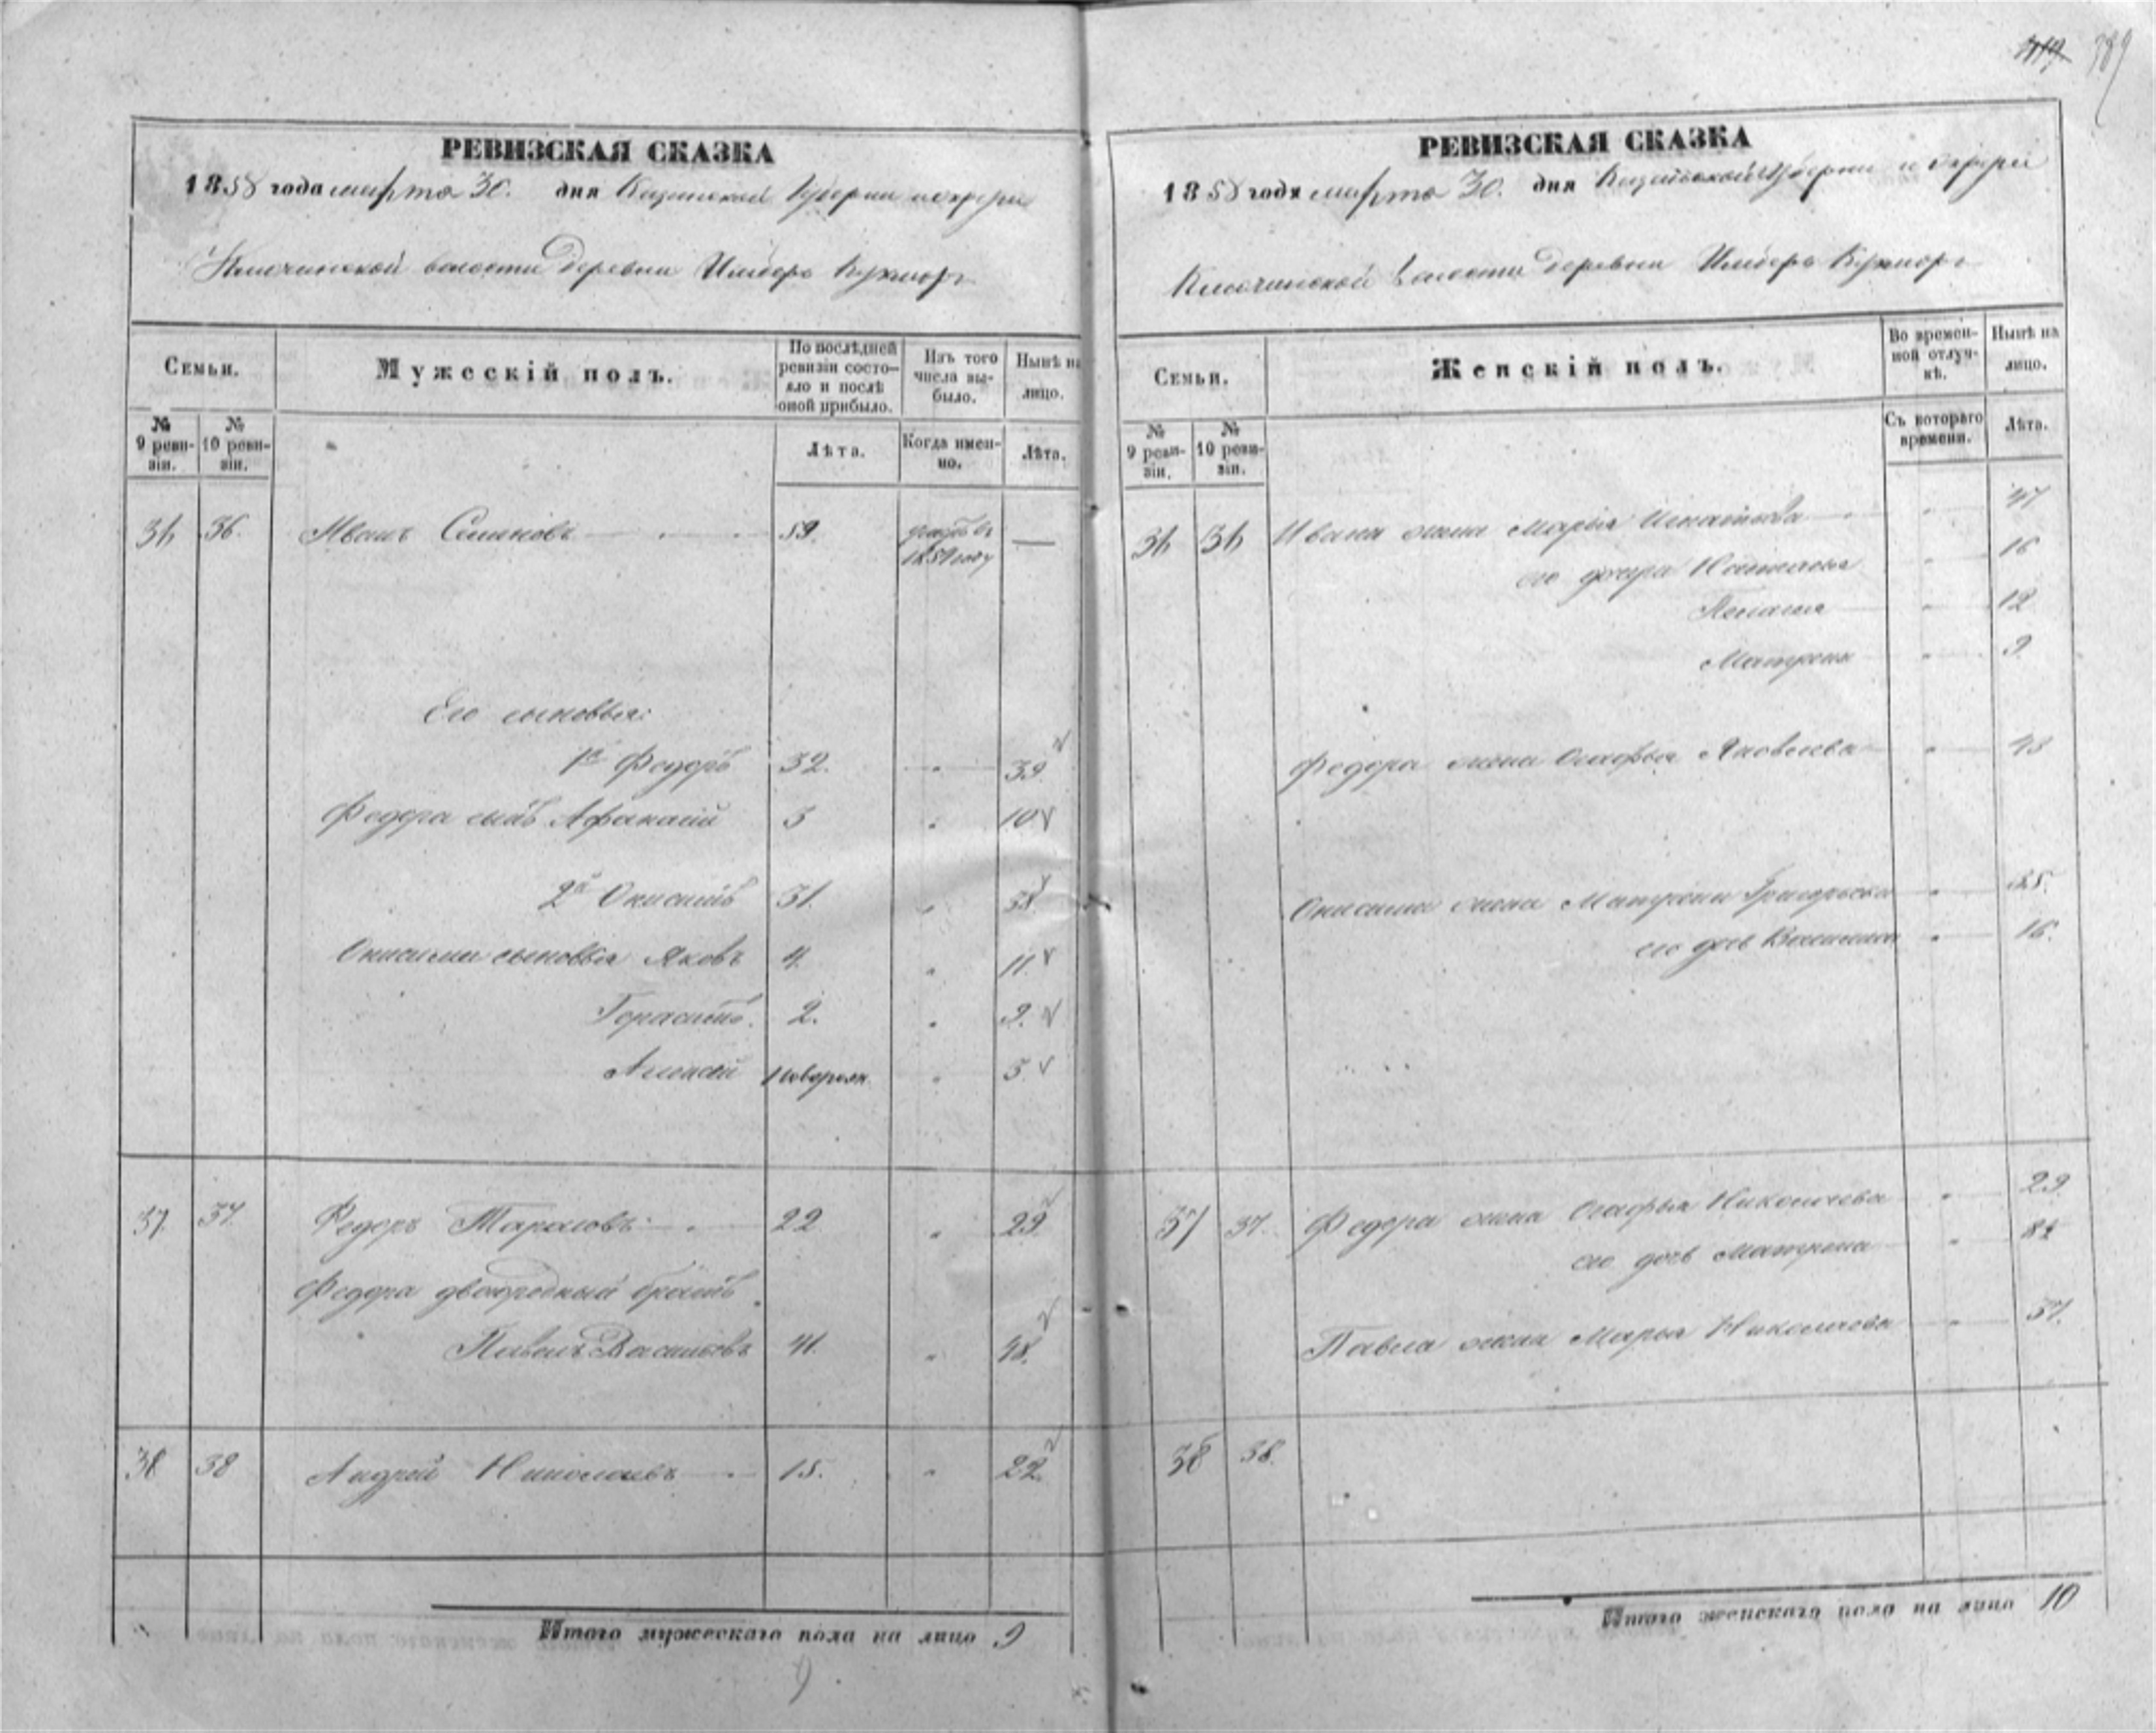 389
РЕВИЗСКАЯ СКАЗКА
1858 года марта 30. дня Казанской Губерніи и округи
Ключинской волости деревни Починокъ Кукморъ
Семьи.
Мужескій полъ.
По послѣдней ревизіи состояло и послѣ оной прибыло.
Изъ того числа выбыло.
Нынѣ на лицо.
№ 9 ревизіи.
№ 10 ревизіи.
Лѣта.
Когда именно.
Лѣта.
36 36. Иванъ Семеновъ 59. — 
1851 году
Его сыновья:
1й Федоръ 32. 39.
Федора сынъ Афанасій 3 10
2й Онисимъ 31. 38.
Онисима сыновья Яковъ 4. 11.
Герасимъ. 2. 9.
Алексей новорожд. 5.
37. 37. Федоръ Тарасовъ 22. 29.
Федора двоюродный братъ
Павелъ Васильевъ 41. 48.
38 38 Андрей Николаевъ 15. 22.
Итого мужескаго пола на лицо 9
9
РЕВИЗСКАЯ СКАЗКА
1858 года марта 30. дня Казанской Губерніи и округи
Ключинской волости деревни Кукморъ
Семьи.
Женскій полъ.
Во временной отлучкѣ.
Нынѣ на лицо.
№ 9 ревизіи.
№ 10 ревизіи.
Съ котораго времени.
Лѣта.
36 36 Ивана жена Марья Игнатьева 47
его дочери Наталья 16
Пелагея 12
Матрена 9.
Федора жена Агафья Яковлева 43
Онисима жена Матрена Григорьева 35.
его дочь 16.
37 37. Федора жена Агафья Николаева 29.
его дочь Матрена
Павла жена Марья Николаева 37.
38 38.
Итого женскаго пола на лицо 10